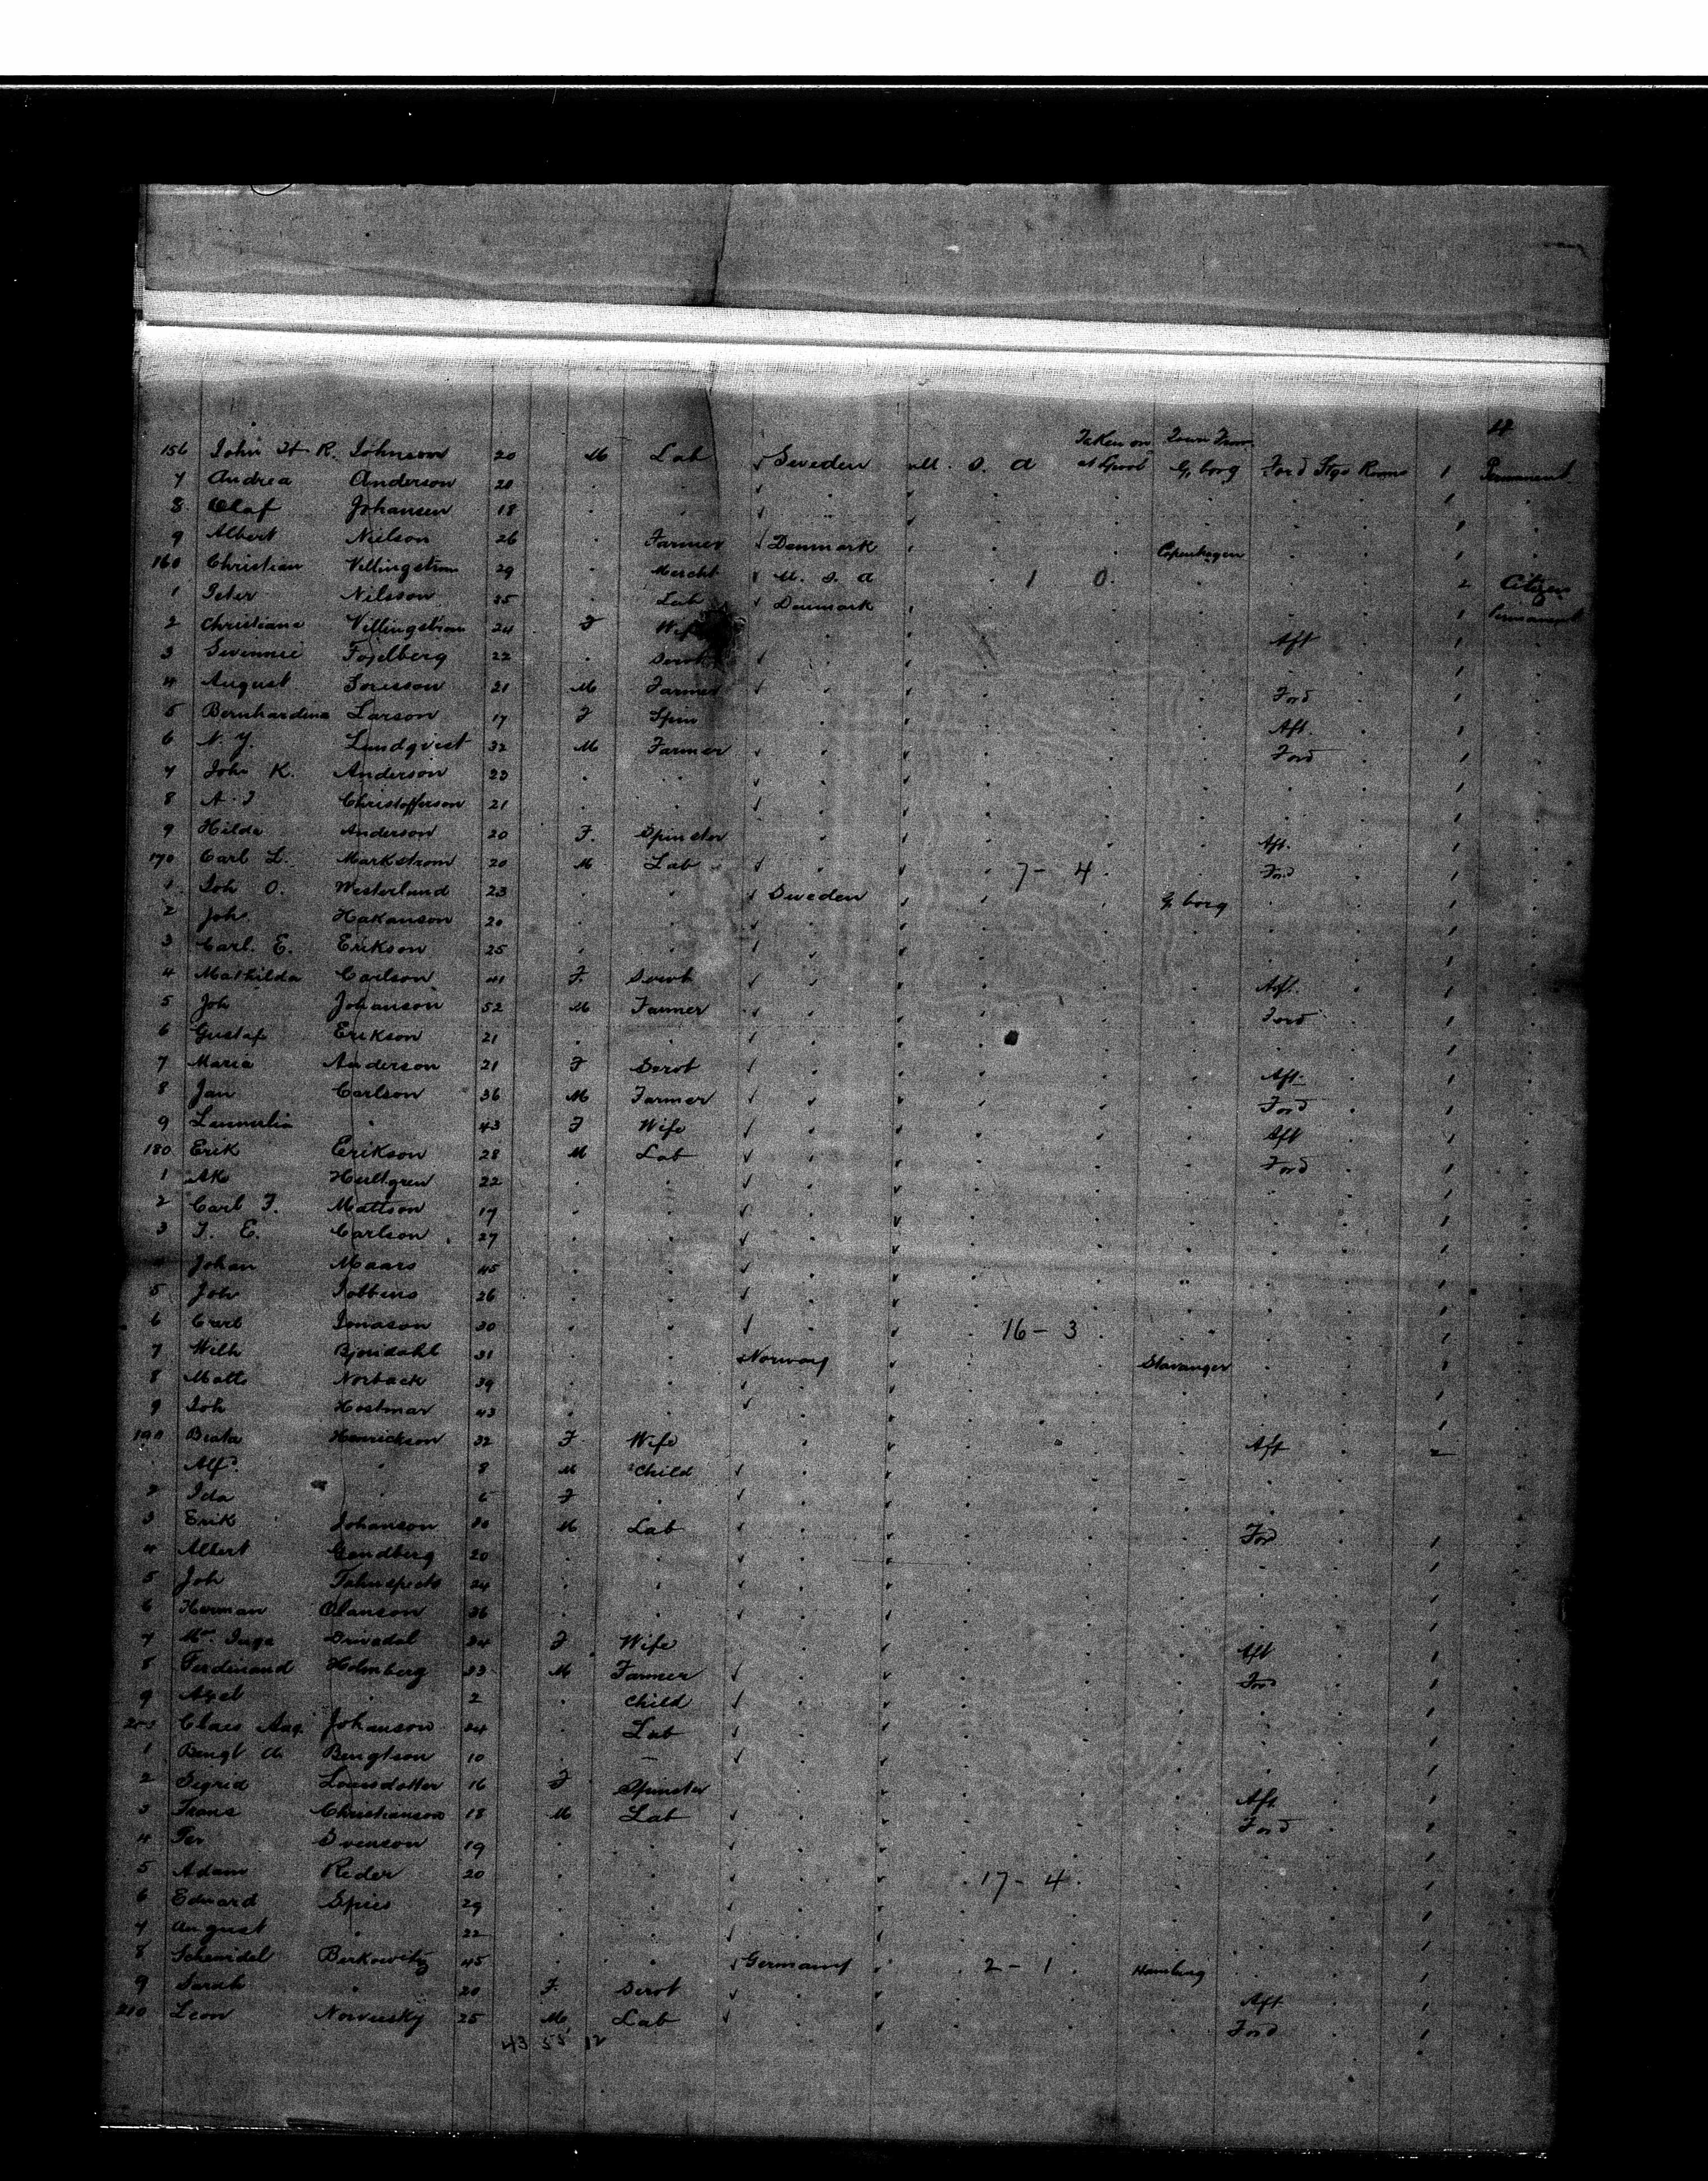 4
Taken on Town From
156 John H R. Johnson 20 M Lab Sweden U. S. A at Lpool G, borg For'd Stge Rooms 1 Permanent
7 Andrea Anderson 20 . . . . 1 .
8 Olaf Johansen 18 . . . . 1 .
9 Albert Nielson 26 . Farmer Denmark . Copenhagen . 1 .
160 Christian Villingstrom 29 . Mercht U. S. A . 1 0 . . 2 Citizen
1 Peter Nilsson 35 . Lab Denmark . . . 1 Permanent
2 Christiane Villingstrom 24 F Wife . . Aft 1 .
3 Fojelberg 22 . Servt . . . 1 .
4 August 21 M Farmer . . For'd 1 .
5 Bernhardina Larson 17 F Spin . . Aft. 1 .
6 N. Y. Lundqvist 32 M Farmer . . For'd 1 .
7 John K. Anderson 23 . . . . . 1 .
8 A. J Christofferson 21 . . . . . 1 .
9 Hilda Anderson 20 F. Spinster . . Aft. 1 .
170 Carl L. Markstrom 20 M Lab . 7 - 4 . For'd 1 .
1 Joh O. Westerlund 23 . . Sweden . G, borg . 1 .
2 Joh. Hakanson 20 . . . . . 1 .
3 Carl. E. Erikson 25 . . . . . 1 .
4 Mathilda Carlson 41 F. Servt . . Aft. 1 .
5 Joh Johanson 52 M Farmer . . For'd 1 .
6 Gustaf Erikson 21 . . . . . 1 .
7 Maria Anderson 21 F Servt . . Aft. 1 .
8 Jan Carlson 36 M Farmer . . For'd 1 .
9 " 43 F Wife . . Aft 1 .
180 Erik Erikson 28 M Lab . . For'd 1 .
1 Ak Hultgren 22 . . . . . 1 .
2 Carl F. Mattson 17 . . . . . 1 .
3 F. E. Carlson 27 . . . . . 1 .
Johan Maars 45 . . . " . 1 .
5 Joh 26 . . . . . 1 .
6 Carl Jonason 30 . . . 16 - 3 . . 1 .
7 Wilh Bjondahl 31 . . Norway . Stavanger . 1 .
8 Matts Norback 39 . . . . . 1 .
9 Joh Hostmar 43 . . . . . 1 .
190 Beata Henrickson 32 F Wife . . Aft 2 .
Alfd. " 8 M Child . . . .
2 Ida 6 F . . . . .
3 Erik Johanson 30 M Lab . . For'd 1 .
4 Albert Gandberg 20 . . . . . 1 .
5 Joh 24 . . . . . 1 .
6 Herman Olanson 36 . . . . . 1 .
7 Mrs. Inga 24 F Wife . . Aft 1 .
8 Ferdinand Holmberg 33 M Farmer . . For'd 1 .
9 Axel " 2 . Child . . . .
200 Claes Aug. Johanson 24 Lab . . . 1 .
1 Bengt A. Bengtson 10 . — . . . 1 .
2 Sigrid Larsdotter 16 F Spinster . . Aft 1 .
3 Frans Christianson 18 M Lab . . For'd 1 .
4 Per Svenson 19 . . . . . 1 .
5 Adam Rider 20 . . . 17 - 4 . . 1 .
6 Edward Spies 29 . . . . . 1 .
7 August " 22 . . . . . 1 .
8 Schemdel Berkowitz 45 . . Germany 2 - 1 . Hamburg . 1 .
9 Sarah " 20 F. Servt . . Aft 1 .
210 Leon 25 M. Lab . . For'd 1 .
43 55 12